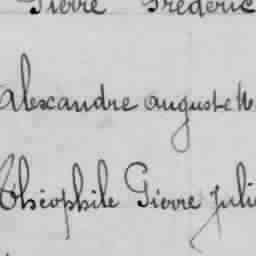 Pierre Frédéric
Alexandre auguste
Théophile Pierre Juli